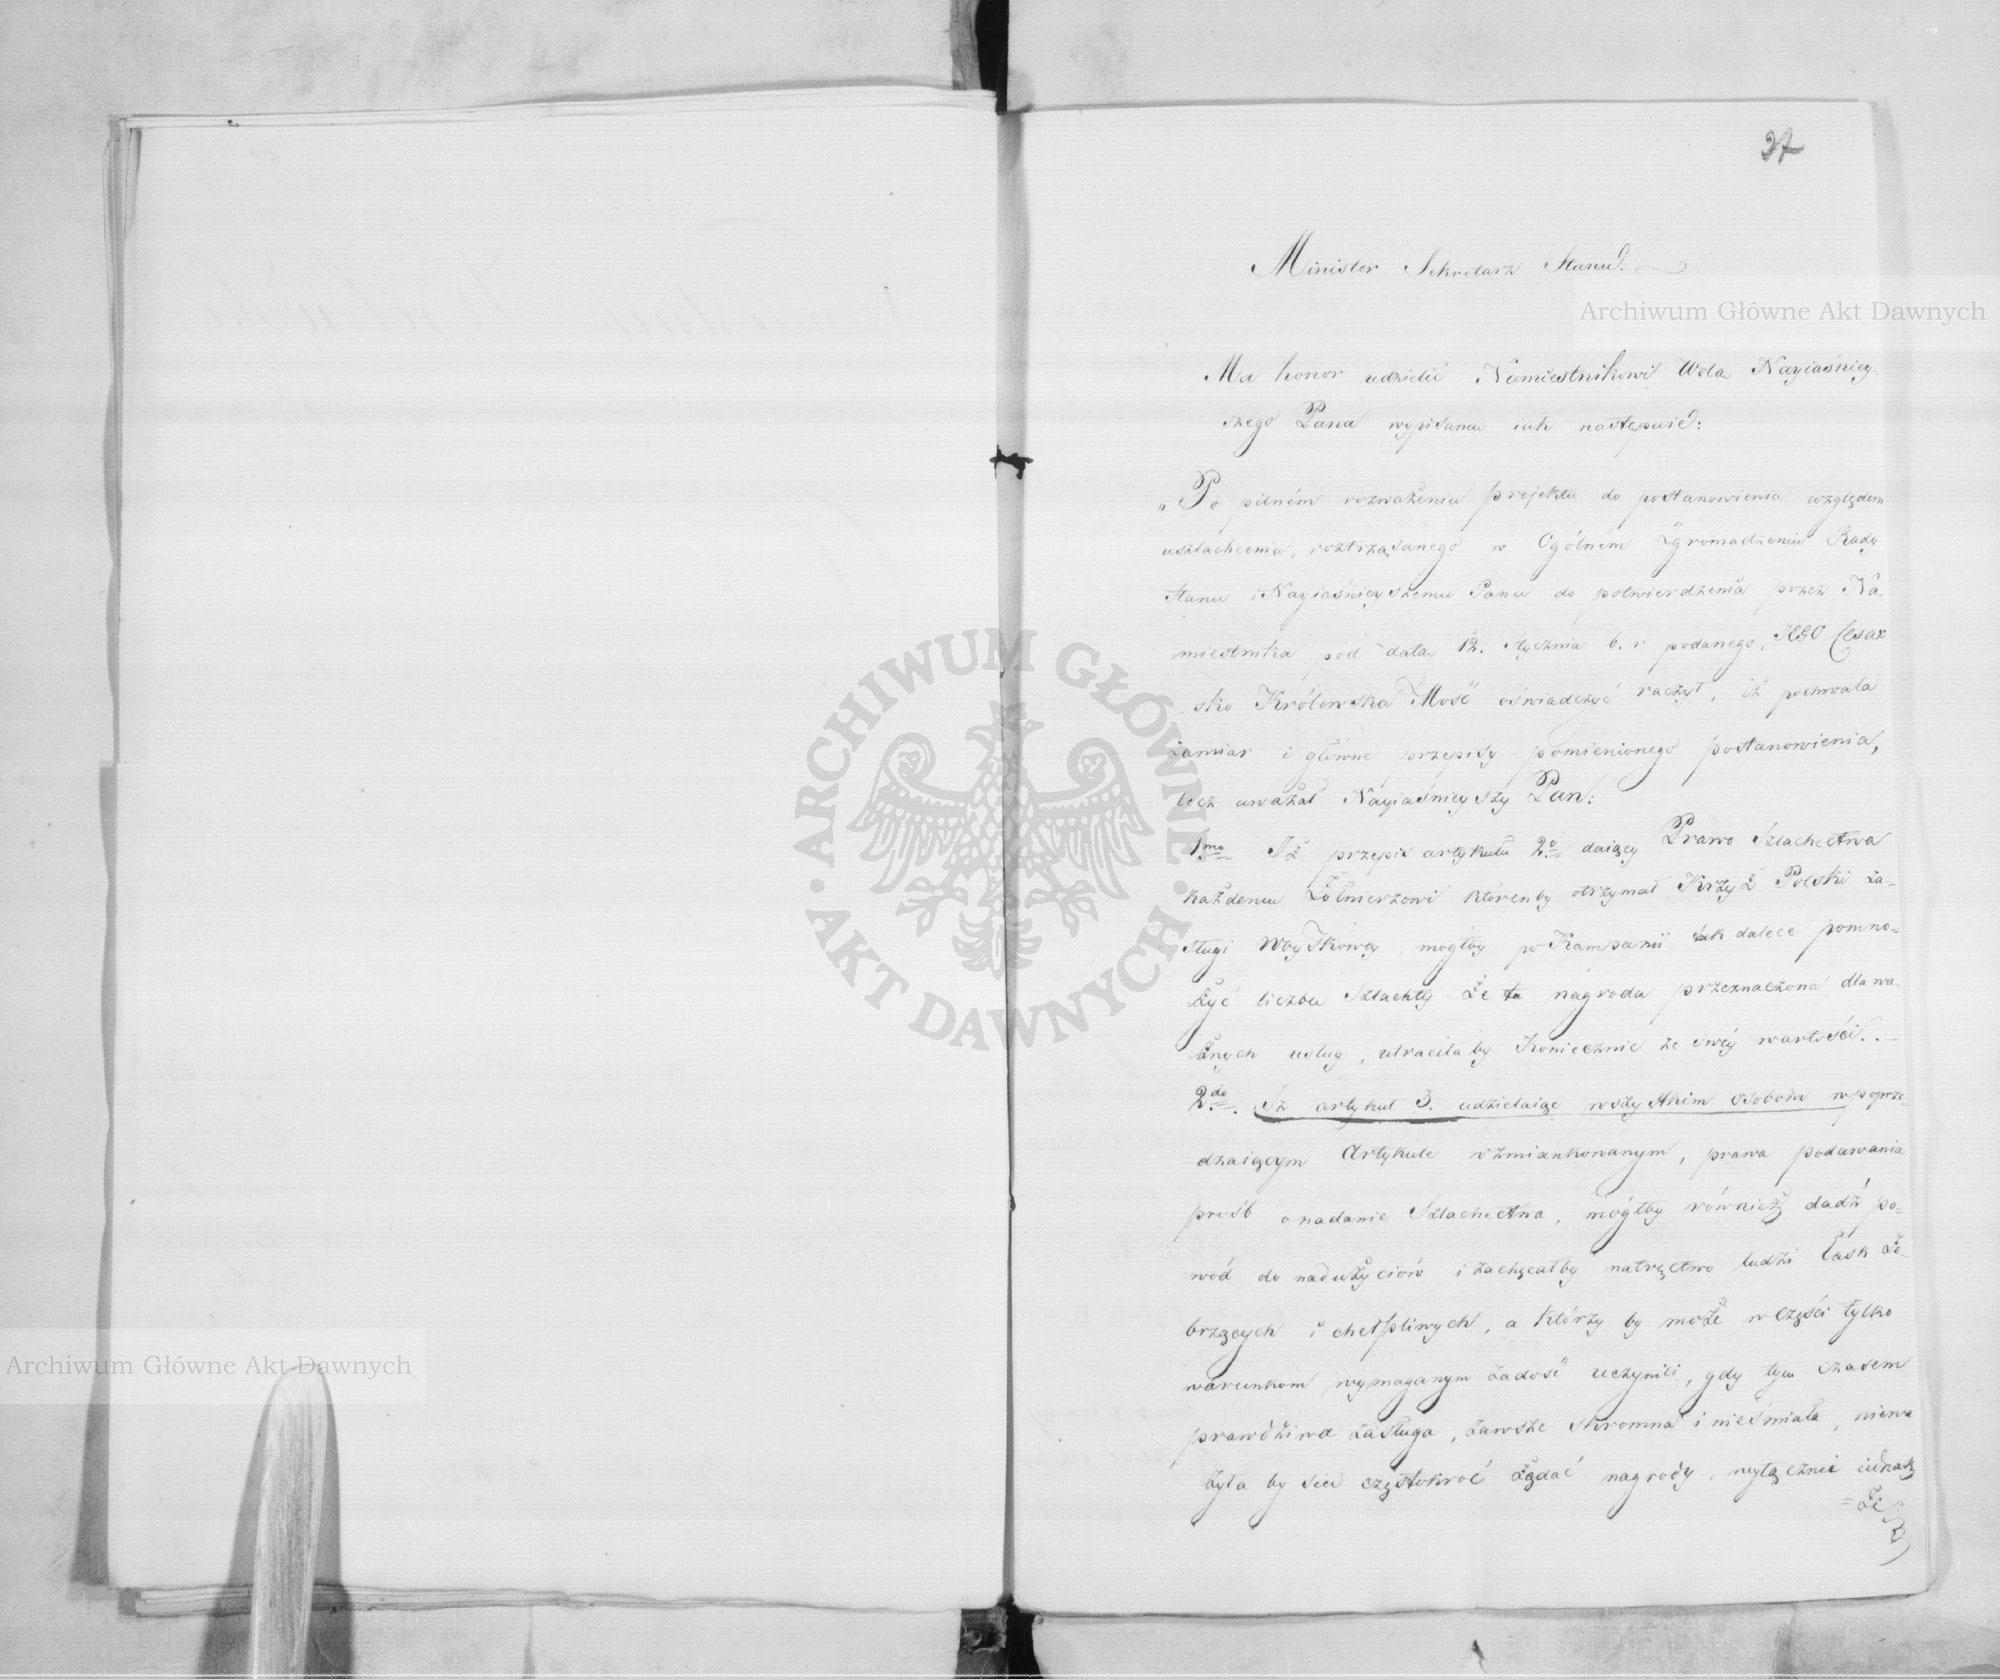 37
Minister Sekretarz Stanu.
Archiwum Główne Akt Dawnych
Ma honor udzielić Namiestnikowi Wolą Nayiaśniey-
szego Pana wypisaną iak następuie:
„Po pilném rozważeniu projektu do postanowienia względem
uszlachcenia, roztrząsanego w Ogólném Zgromadzeniu Rady
Stanu i Nayiaśnieyszemu Panu do potwierdzenia przez Na-
miestnika pod datą 12. Stycznia b. r podanego, JEGO Cesar
sko Królewska Mość oświadczyć raczył, iż pochwala
zamiar i główne przepisy pomienionego postanowienia,
lecz uważał Nayiaśnieyszy Pan:
1mo Iż przepis artykułu 2o daiący Prawo Szlachectwa
każdemu Żołnierzowi którenby otrzymał Krzyż Polski za-
sługi Woyskowey, mogłby po Kampanii tak dalece pomno-
żyć liczbę Szlachty że ta nagroda przeznaczona dla wa-
żnych usług, utraciłaby Koniecznie ze swéy wartości. . —
2do. Iż artykuł 3. udzielaiąc wszystkim osobom w poprze-
dzaiącym Artykule wzmiankowanym, prawa podawania
prośb o nadanie Szlachectwa, mógłby również dadź po-
wód do nadużyciów i zachęcałby natręctwo ludzi łask że-
brzących i chełpliwych, a którzy by może w części tylko
warunkom wymaganym zadość uczynili, gdy tym czasem
prawdziwa zasługa, zawsze skromna i nieśmiała, niewa
żyła by się częstokroć żądać nagrody. wyłącznie iednak
= że
ARCHIWUM GŁÓWNE · AKT DAWNYCH ·
Archiwum Główne Akt Dawnych